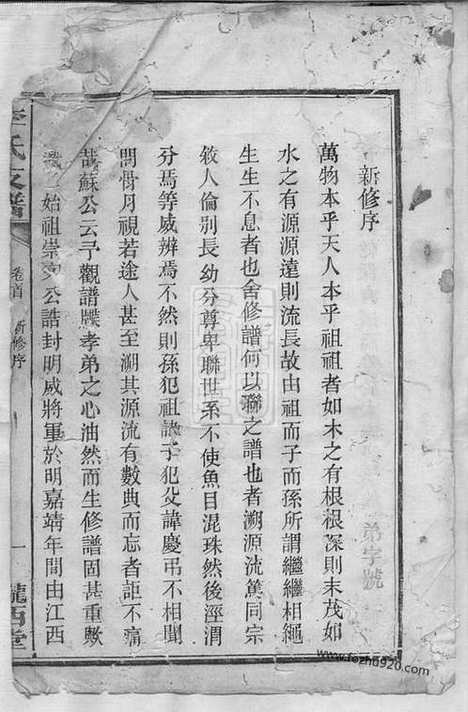 新修序
萬物本乎天人本乎祖祖者如木之有根根深則末茂如
水之有源源遠則流長故由祖而子而孫所謂繼繼相繩
生生不息者也舍修譜何以聯之譜也者溯源流篤同宗
敘人倫別長幼分尊卑聯世系不使魚目混珠然後涇渭
分焉等威辨焉不然則孫犯祖諱子犯父諱慶弔不相聞
問骨月視若途人甚至溯其源流有數典而忘者詎不痛
哉蘇公云予觀譜牒孝弟之心油然而生修譜固甚重歟
始祖崇文公誥封明威將軍於明嘉靖年間由江西
李氏支譜
卷首
新修序
一
隴西堂
弟字號
www.fozhu920.com